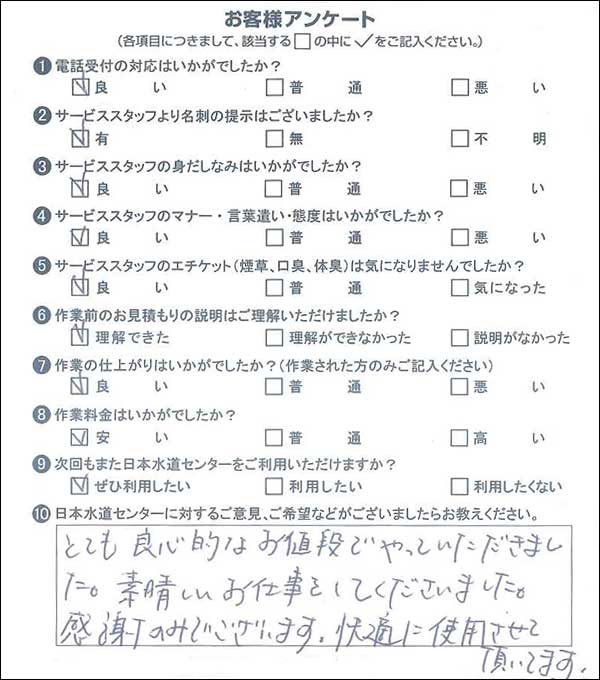 お客様アンケート
(各項目につきまして、該当する□の中に✓をご記入ください。)
❶電話受付の対応はいかがでしたか？
☑良い □普通 □悪い
❷サービススタッフより名刺の提示はございましたか？
☑有 □無 □不明
❸サービススタッフの身だしなみはいかがでしたか？
☑良い □普通 □悪い
❹サービススタッフのマナー・言葉遣い・態度はいかがでしたか？
☑良い □普通 □悪い
❺サービススタッフのエチケット(煙草、口臭、体臭)は気になりませんでしたか？
☑良い □普通 □気になった
❻作業前のお見積もりの説明はご理解いただけましたか？
☑理解できた □理解ができなかった □説明がなかった
❼作業の仕上がりはいかがでしたか？(作業された方のみご記入ください)
☑良い □普通 □悪い
❽作業料金はいかがでしたか？
☑安い □普通 □高い
❾次回もまた日本水道センターをご利用いただけますか？
☑ぜひ利用したい □利用したい □利用したくない
❿日本水道センターに対するご意見、ご希望などがございましたらお教えください。
とても良心的なお値段でやっていただきまし
た。素晴しいお仕事をしてくださいました。
感謝のみでございます。快適に使用させて
頂いてます。